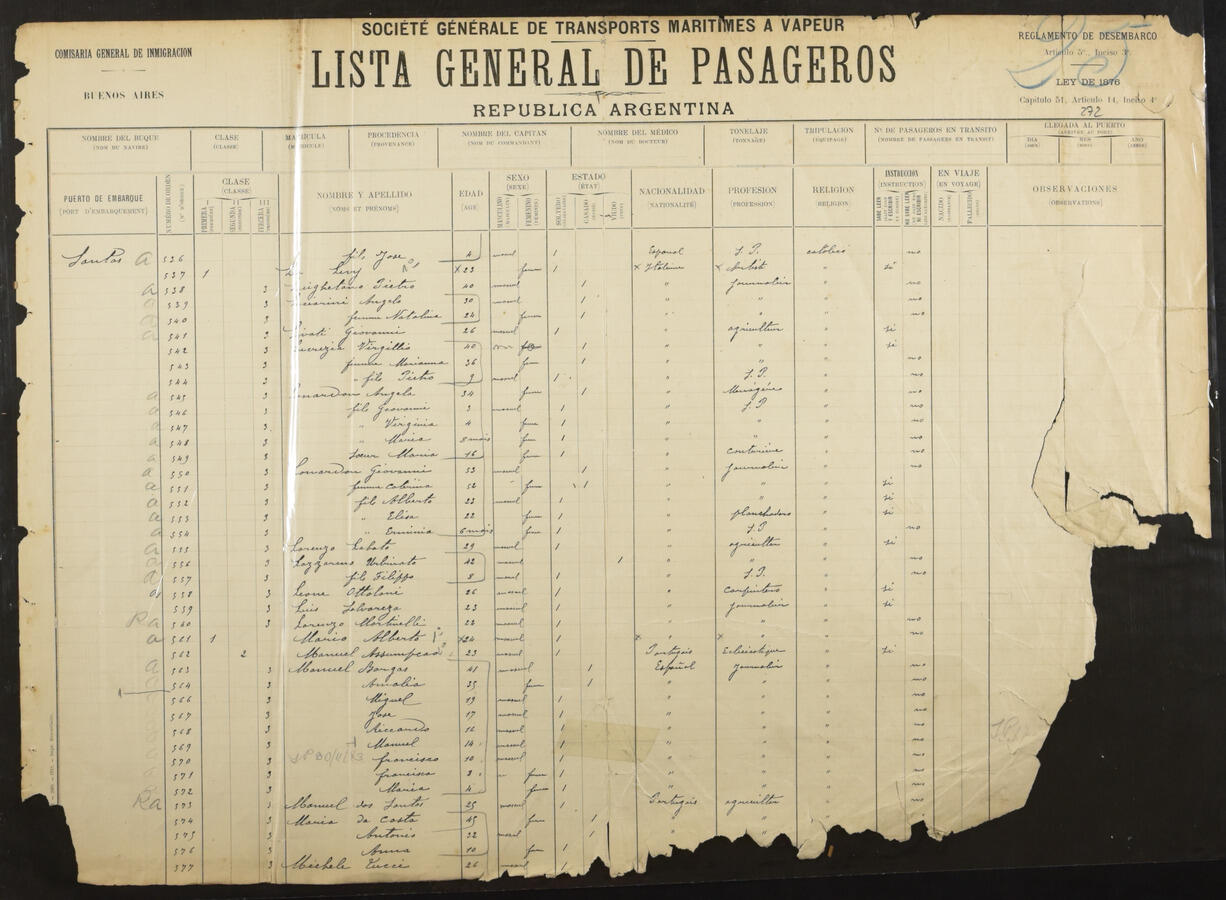 SOCIÉTÉ GÉNÉRALE DE TRANSPORTS MARITIMES A VAPEUR
COMISARIA GENERAL DE INMIGRACION
BUENOS AIRES
LISTA GENERAL DE PASAGEROS
REPUBLICA ARGENTINA
REGLAMENTO DE DESEMBARCO
Artículo 5º, Inciso 3º
LEY DE 1876
Capítulo 51, Artículo 14, Inciso 4º
272
NOMBRE DEL BUQUE (NOM DU NAVIRE) CLASE (CLASSE) MATRICULA (MATRICULE) PROCEDENCIA (PROVENANCE) NOMBRE DEL CAPITAN (NOM DU COMMANDANT) NOMBRE DEL MÉDICO (NOM DU DOCTEUR) TONELAJE (TONNAGE) TRIPULACION (EQUIPAGE) Nº DE PASAGEROS EN TRANSITO (NOMBRE DE PASSAGERS EN TRANSIT) LLEGADA AL PUERTO (ARRIVÉE AU PORT)
DIA (JOUR) MES (MOIS) AÑO (ANNÉE)
PUERTO DE EMBARQUE (PORT D'EMBARQUEMENT) NUMERO DE ORDEN (Nº D'ORDRE) CLASE (CLASSE) NOMBRE Y APELLIDO (NOMS ET PRÉNOMS) EDAD (AGE) SEXO (SEXE) ESTADO (ÉTAT) NACIONALIDAD (NATIONALITÉ) PROFESION (PROFESSION) RELIGION (RELIGION) INSTRUCCION (INSTRUCTION) EN VIAJE (EN VOYAGE) OBSERVACIONES (OBSERVATIONS)
PRIMERA SEGUNDA TERCERA MASCULINO FEMENINO SOLTERO CASADO VIUDO SABE LEER Y ESCRIBIR NO SABE LEER NI ESCRIBIR NACIDO FALLECIDO
Santos a 536 fils Jose 4 mascul 1 Espanol S.P. catolico no
537 1 Levy x 23 fem 1 x Italienne x Artist " si
a 538 3 Pietro 40 mascul 1 " journalier " no
539 3 Angelo 30 mascul 1 " " " no
540 3 femme Natalina 24 fem 1 " " " no
a 541 3 Giovanni 26 mascul 1 " agriculteur " si
542 3 Lucrezia Virgillio 40 " " " si
543 3 femme Marianna 36 fem 1 " " " no
544 3 " fils Pietro 9 mascul 1 " S.P. " no
a 545 3 Angela 34 fem 1 " Ménagère " no
a 546 3 fils Giovanni 3 mascul 1 " S.P. " no
a 547 3 " Virginia 4 fem 1 " " " no
a 548 3 " Maria 8 mois fem 1 " " " no
a 549 3 soeur Maria 16 fem 1 " couturière " no
a 550 3 Lonardon Giovanni 53 mascul 1 " journalier " no
a 551 3 femme Caterina 52 " fem 1 " " " si
a 552 3 fils Alberto 23 mascul 1 " " " si
a 553 3 " Elisa 22 fem 1 " planchadora " si
a 554 3 " Erminia 6 mois fem 1 " S.P. " no
a 555 3 Lorenzo Labate 29 mascul 1 " agriculteur " si
a 556 3 Lazzareno Urbinato 42 mascul 1 " " " no
a 557 3 fils Filippo 8 mascul 1 " S.P. " no
a 558 3 Leone Ottoloni 26 mascul 1 " carpintero " si
559 3 Luis Salvarezza 23 mascul 1 " journalier " si
Ra 560 3 Lorenzo Martinelli 22 mascul 1 " " " no
a 561 1 Mario Alberto x 24 mascul 1 x x " no
562 2 Manuel Assumpcao 23 mascul 1 Portugais Eclesiastique " si
a 563 3 Manuel Borgas 41 mascul 1 Español journalier " no
a 564 3 Amalia 35 fem 1 " " " no
566 3 Miguel 19 mascul 1 " " " no
567 3 Jose 17 mascul 1 " " " no
568 3 Riccardo 16 mascul 1 " " " no
569 3 Manuel 14 mascul 1 " " " no
570 3 francisco 10 mascul 1 " " " no
571 3 francisca 3 fem 1 " " " no
572 3 Maria 4 fem 1 " " " no
Ra 573 3 Manuel dos Santos 25 mascul 1 Portugais agriculteur " no
574 3 Maria da Costa 45 fem 1 " " " no
575 3 Antonio 22 mascul 1 " "
576 3 Anna 10 fem 1 "
577 3 Michele Tucci 26 mascul 1